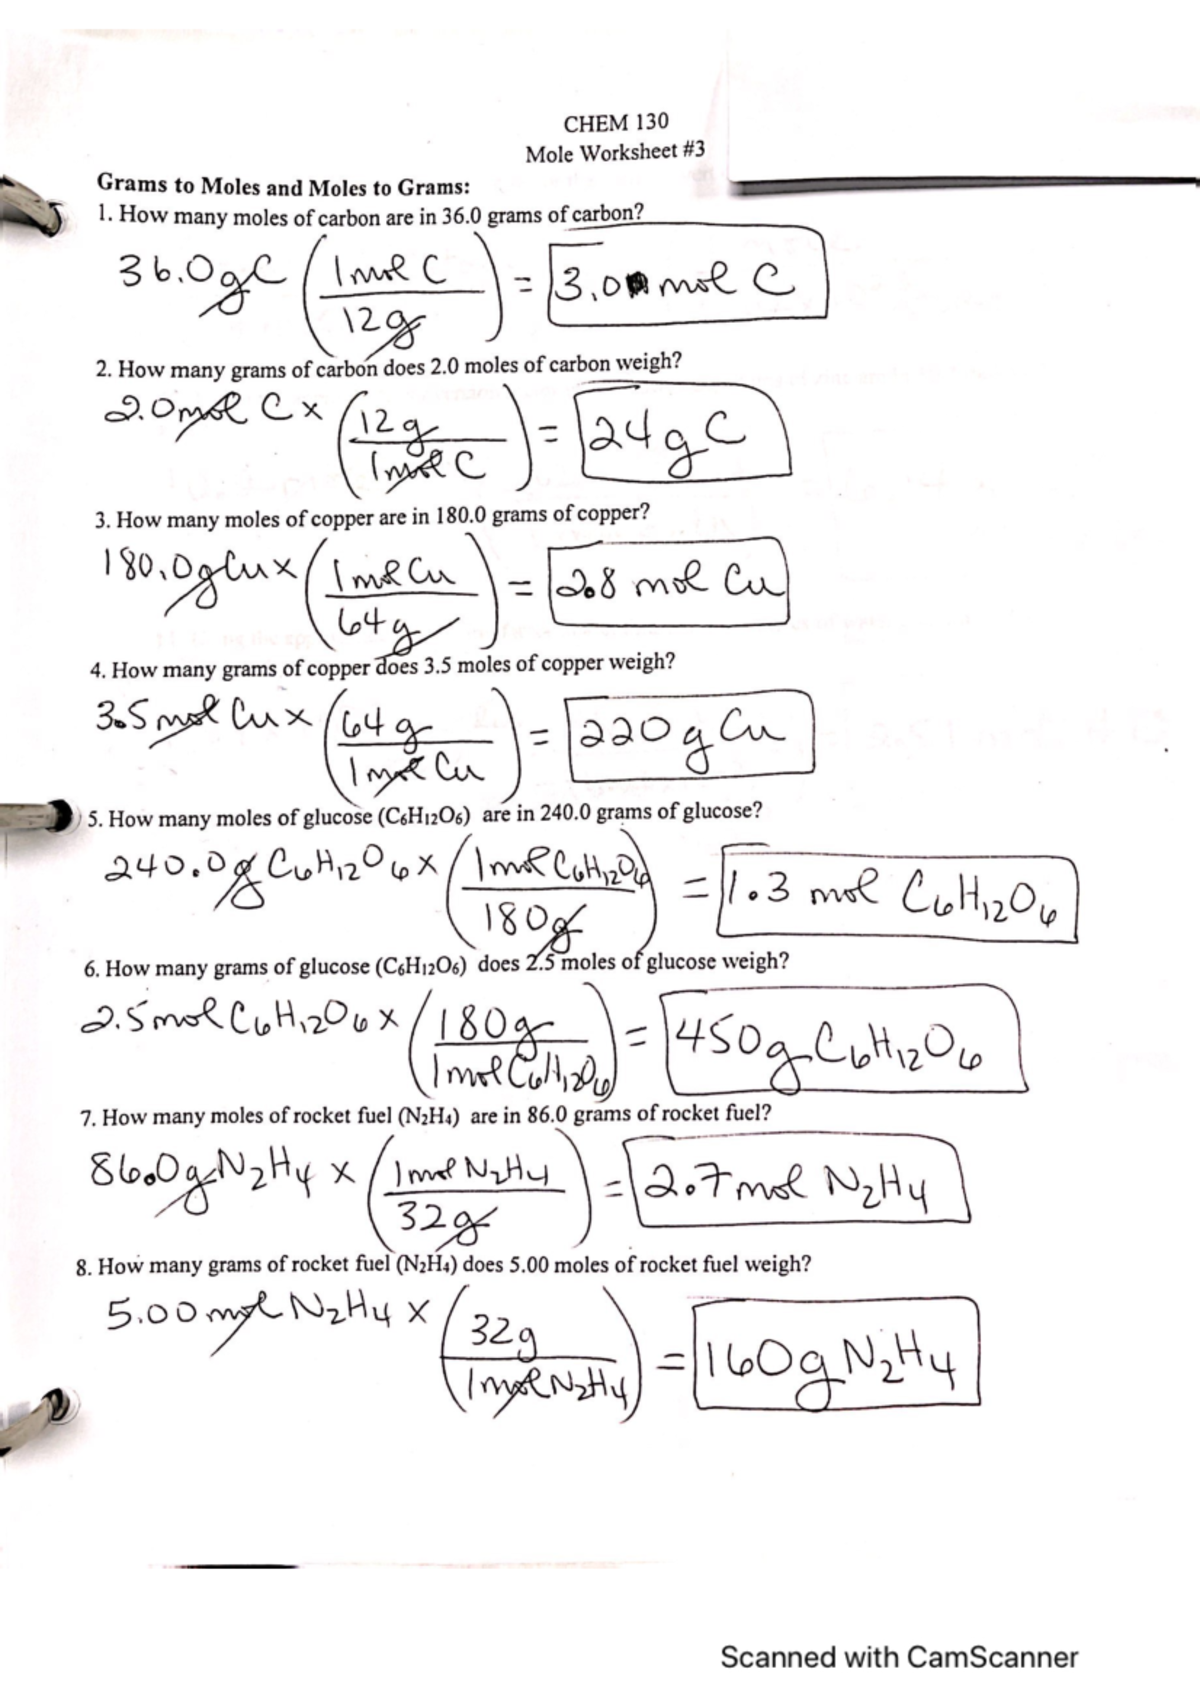 CHEM 130
Mole Worksheet #3
Grams to Moles and Moles to Grams:
1. How many moles of carbon are in 36.0 grams of carbon?
36.0gC (1mol C / 12g) = 3.0 mol C
2. How many grams of carbon does 2.0 moles of carbon weigh?
2.0mol C x (12g / 1mol C) = 24g C
3. How many moles of copper are in 180.0 grams of copper?
180.0gCu x (1mol Cu / 64g) = 2.8 mol Cu
4. How many grams of copper does 3.5 moles of copper weigh?
3.5mol Cu x (64g / 1mol Cu) = 220g Cu
5. How many moles of glucose (C6H12O6) are in 240.0 grams of glucose?
240.0g C6H12O6 x (1mol C6H12O6 / 180g) = 1.3 mol C6H12O6
6. How many grams of glucose (C6H12O6) does 2.5 moles of glucose weigh?
2.5mol C6H12O6 x (180g / 1mol C6H12O6) = 450g C6H12O6
7. How many moles of rocket fuel (N2H4) are in 86.0 grams of rocket fuel?
86.0g N2H4 x (1mol N2H4 / 32g) = 2.7mol N2H4
8. How many grams of rocket fuel (N2H4) does 5.00 moles of rocket fuel weigh?
5.00mol N2H4 x (32g / 1mol N2H4) = 160g N2H4
Scanned with CamScanner